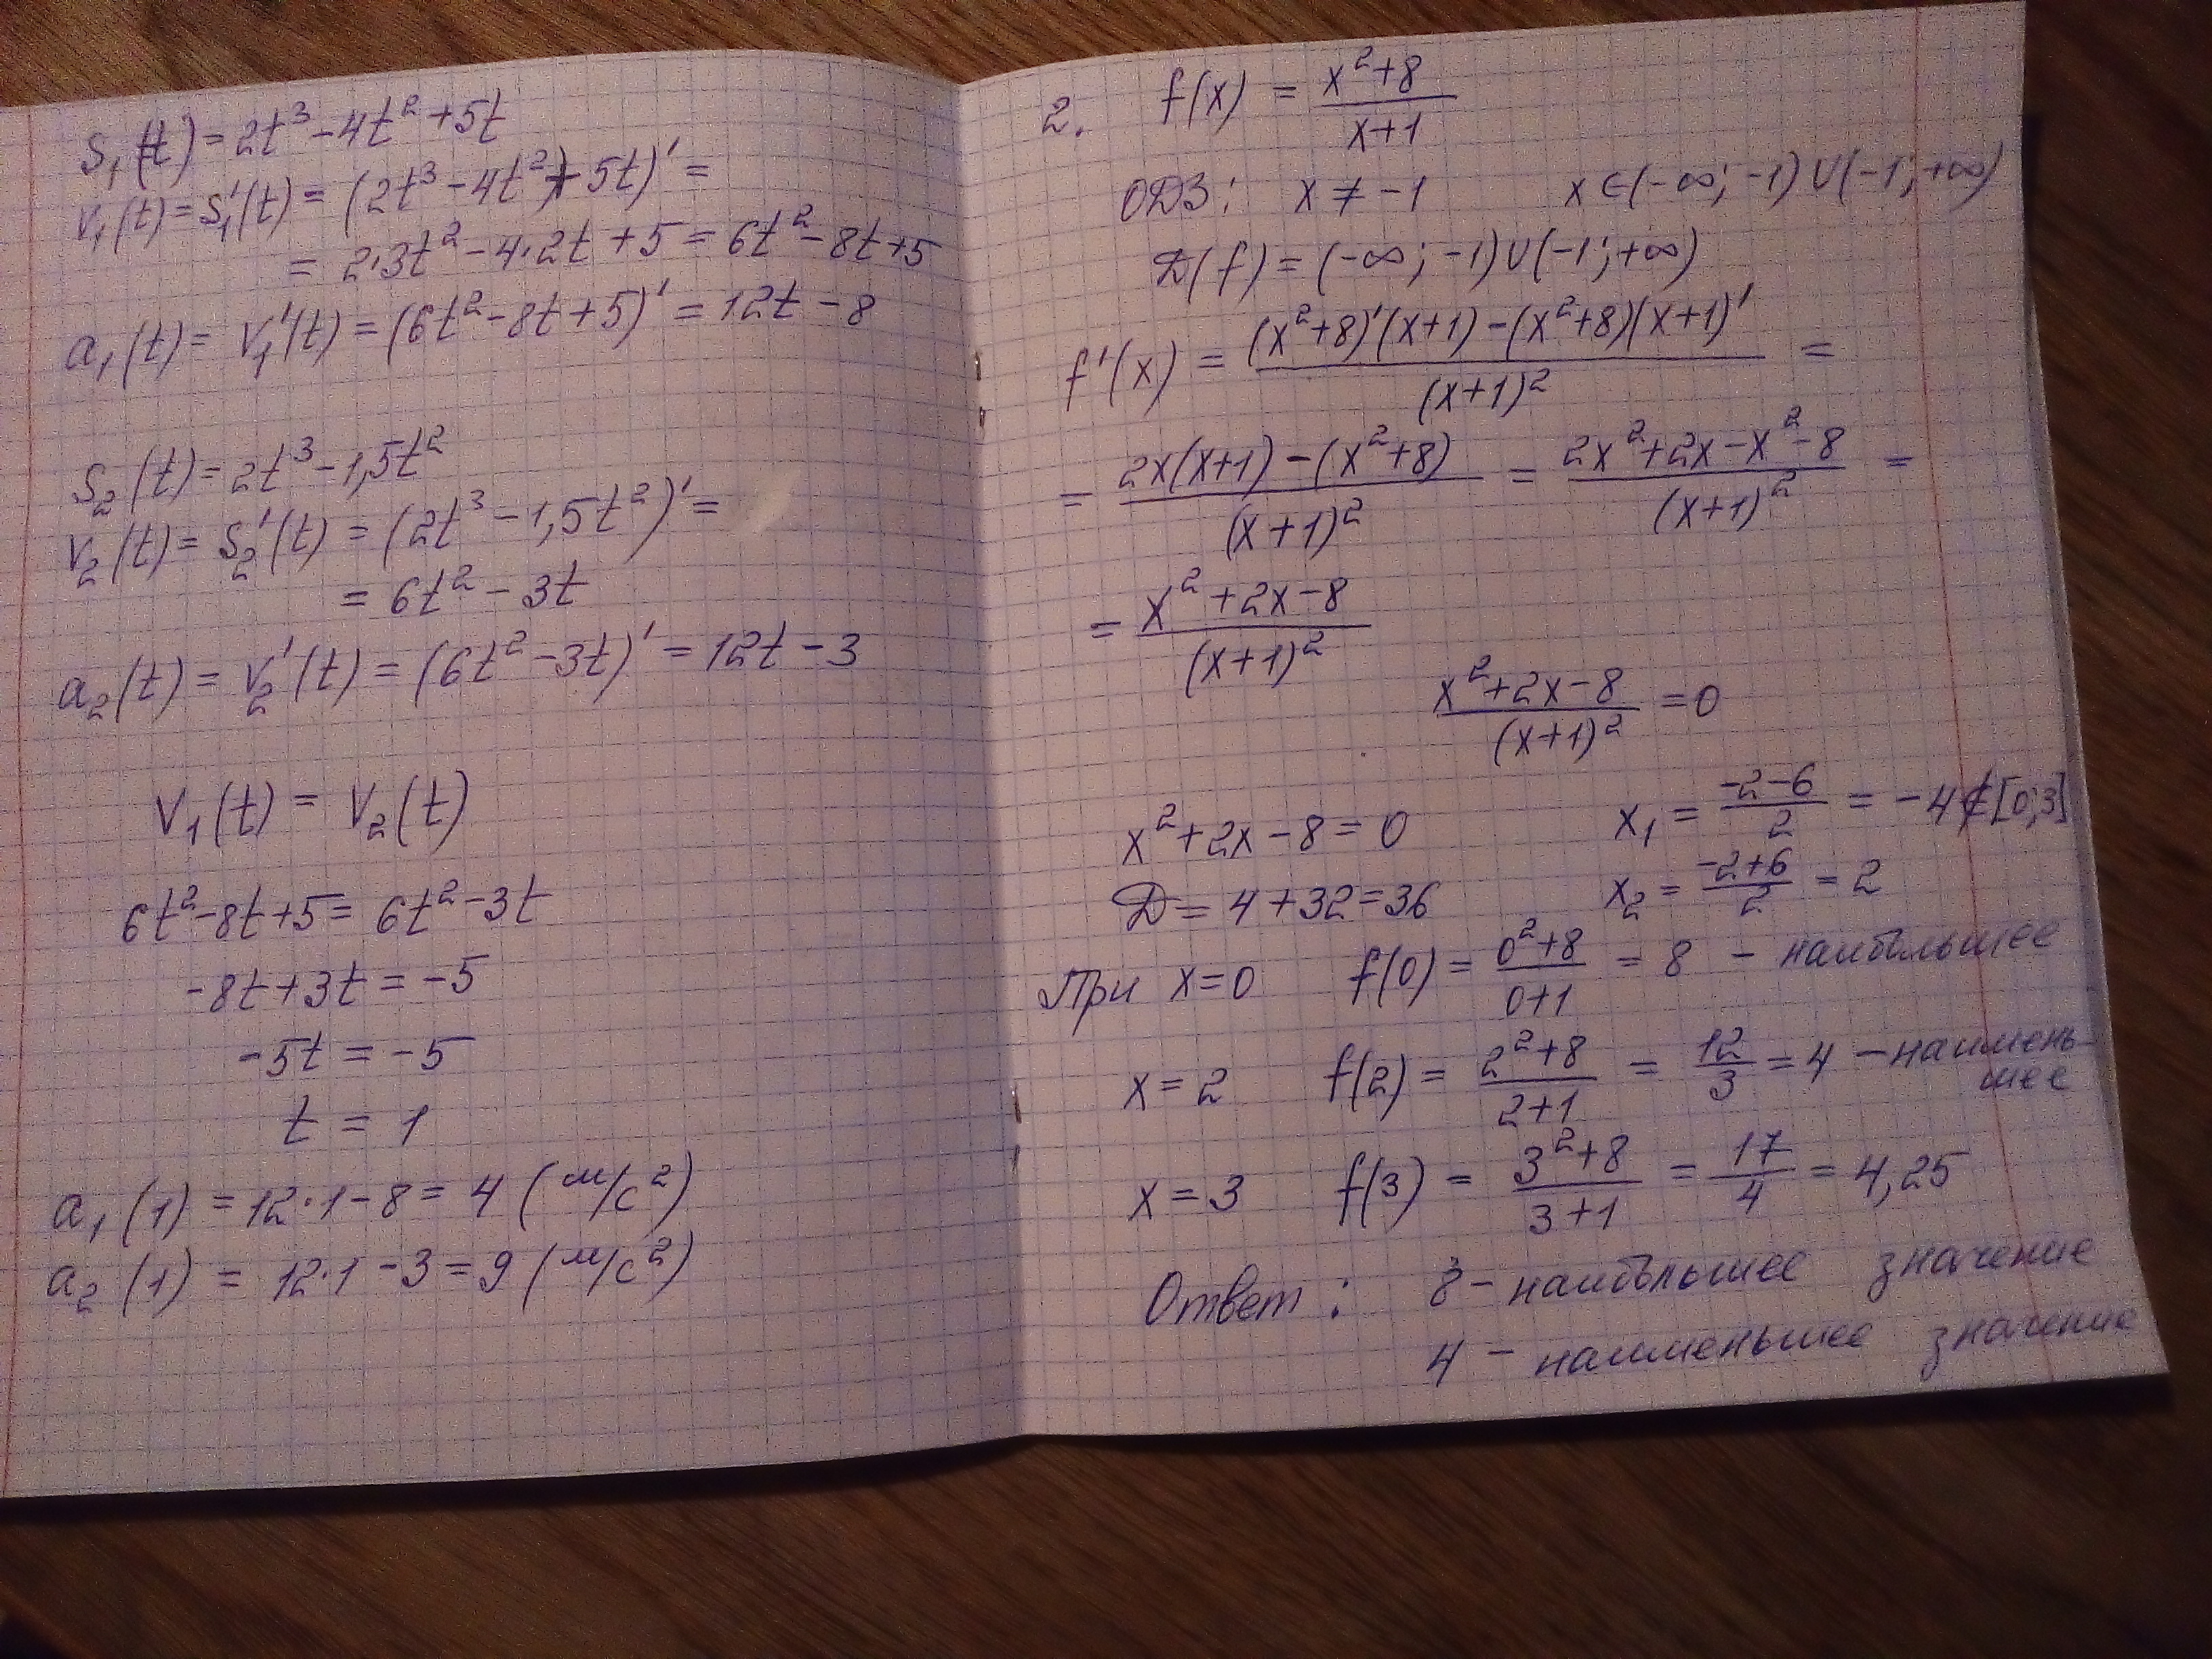 S₁(t) = 2t³ - 4t² + 5t
V₁(t) = S₁'(t) = (2t³ - 4t² + 5t)' =
= 2·3t² - 4·2t + 5 = 6t² - 8t + 5
a₁(t) = V₁'(t) = (6t² - 8t + 5)' = 12t - 8
S₂(t) = 2t³ - 1,5t²
V₂(t) = S₂'(t) = (2t³ - 1,5t²)' =
= 6t² - 3t
a₂(t) = V₂'(t) = (6t² - 3t)' = 12t - 3
V₁(t) = V₂(t)
6t² - 8t + 5 = 6t² - 3t
-8t + 3t = -5
-5t = -5
t = 1
a₁(1) = 12·1 - 8 = 4 (м/с²)
a₂(1) = 12·1 - 3 = 9 (м/с²)
2. f(x) = (x²+8)/(x+1)
ОДЗ: x ≠ -1 x ∈ (-∞; -1) ∪ (-1; +∞)
D(f) = (-∞; -1) ∪ (-1; +∞)
f'(x) = ((x²+8)'(x+1) - (x²+8)(x+1)')/(x+1)² =
= (2x(x+1) - (x²+8))/(x+1)² = (2x²+2x-x²-8)/(x+1)² =
= (x²+2x-8)/(x+1)²
(x²+2x-8)/(x+1)² = 0
x²+2x-8 = 0 x₁ = (-2-6)/2 = -4 ∉ [0;3]
D = 4+32 = 36 x₂ = (-2+6)/2 = 2
При x=0 f(0) = (0²+8)/(0+1) = 8 - наибольшее
x = 2 f(2) = (2²+8)/(2+1) = 12/3 = 4 - наимень-
шее
x = 3 f(3) = (3²+8)/(3+1) = 17/4 = 4,25
Ответ: 8 - наибольшее значение
4 - наименьшее значение